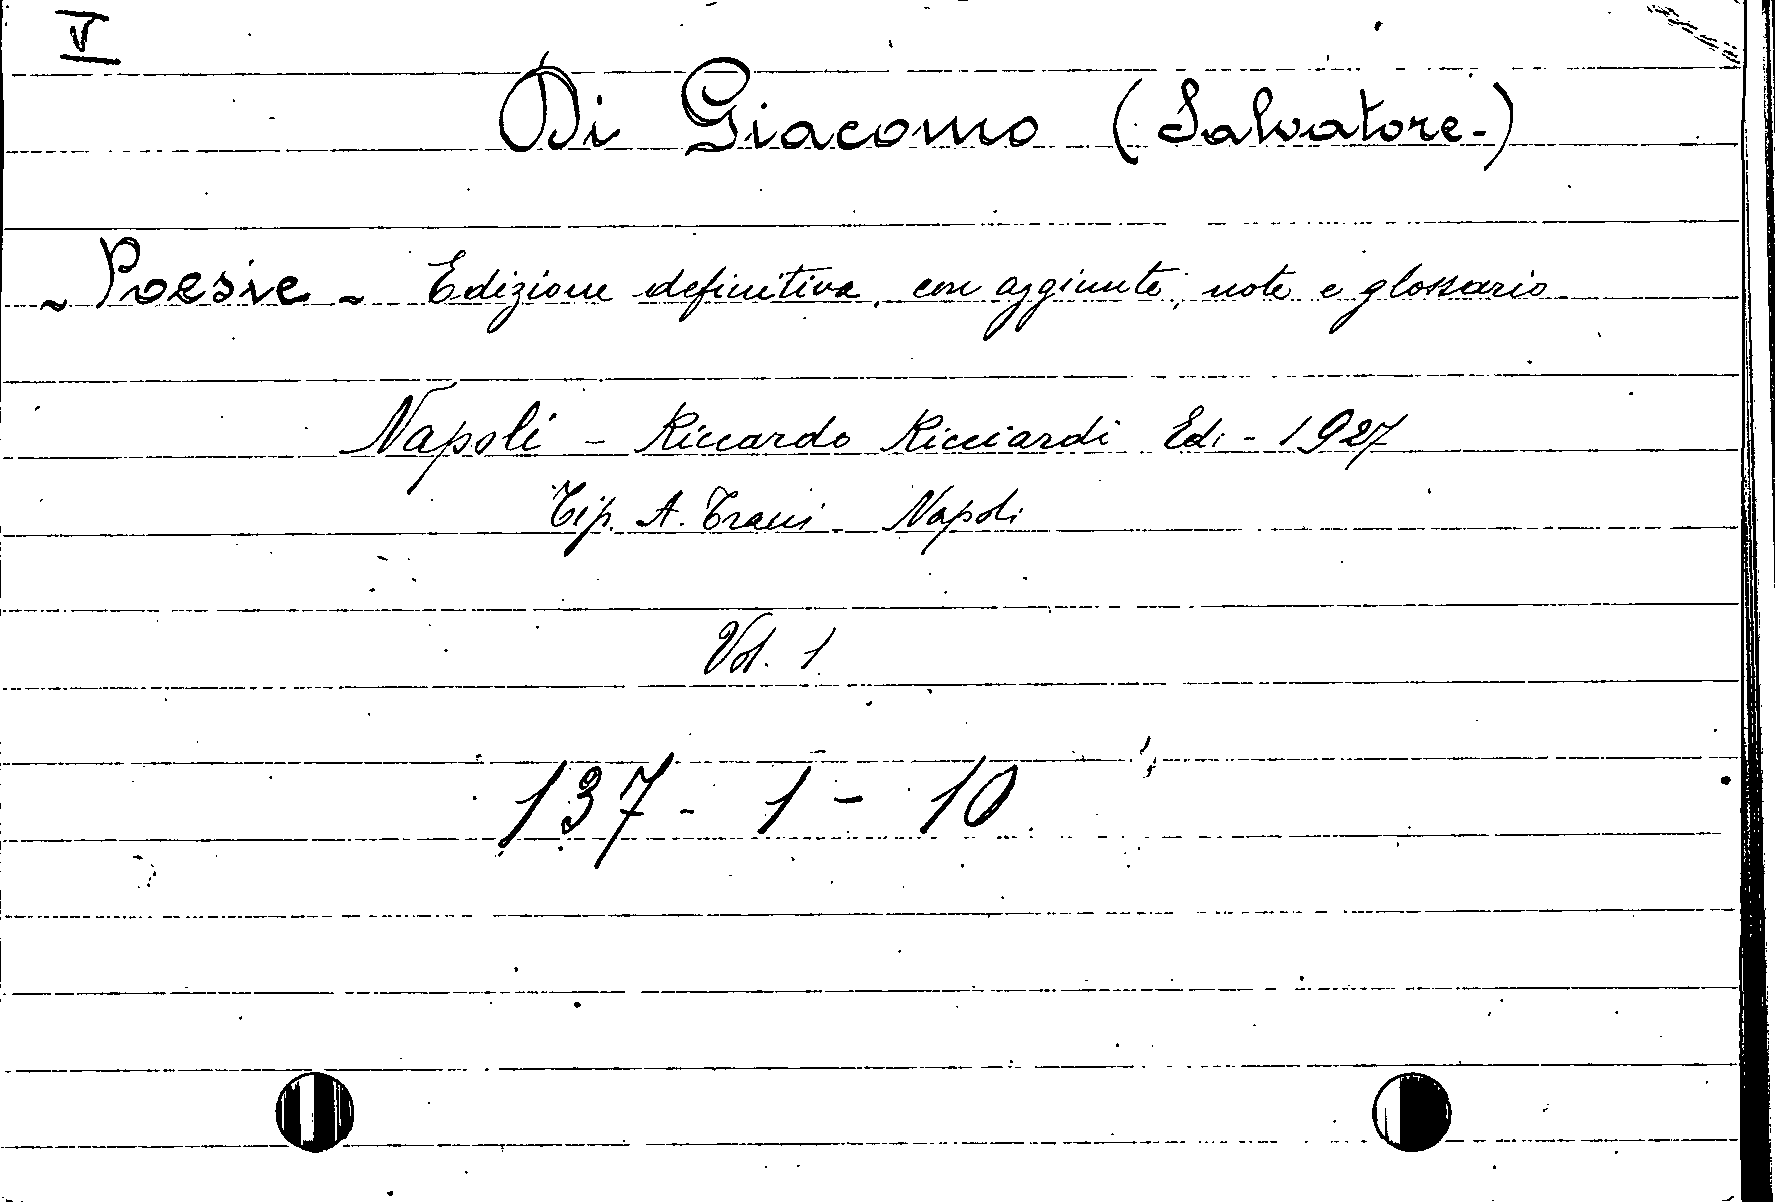 V
Di Giacomo (Salvatore-)
- Poesie - Edizione definitiva, con aggiunte, note e glossario
Napoli - Riccardo Ricciardi Edi - 1927
Tip. A. Trani - Napoli
Vol. 1
137 - 1 - 10